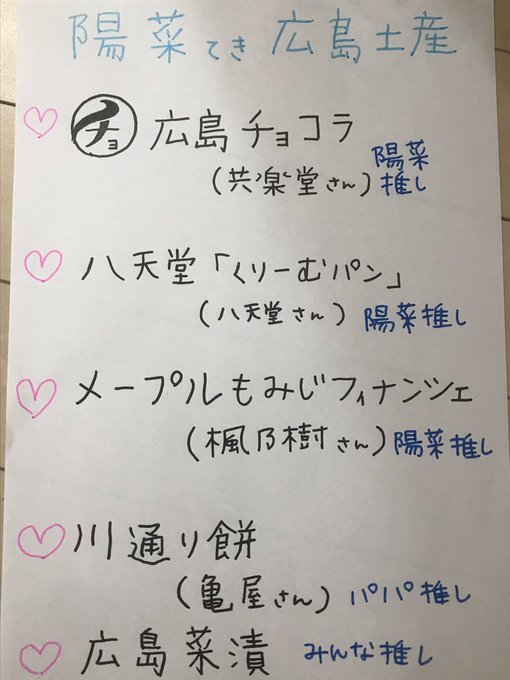 陽菜てき広島土産
チョ 広島チョコラ
(共楽堂さん) 陽菜推し
八天堂「くりーむパン」
(八天堂さん) 陽菜推し
メープルもみじフィナンシェ
(楓乃樹さん) 陽菜推し
川通り餅
(亀屋さん) パパ推し
広島菜漬 みんな推し